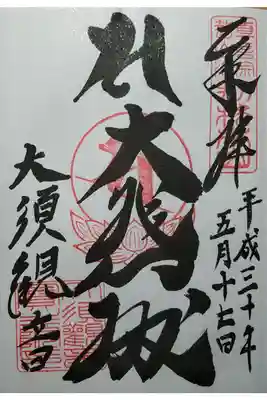 奉拝
平成三十年
五月十七日
大悲殿
大須観音